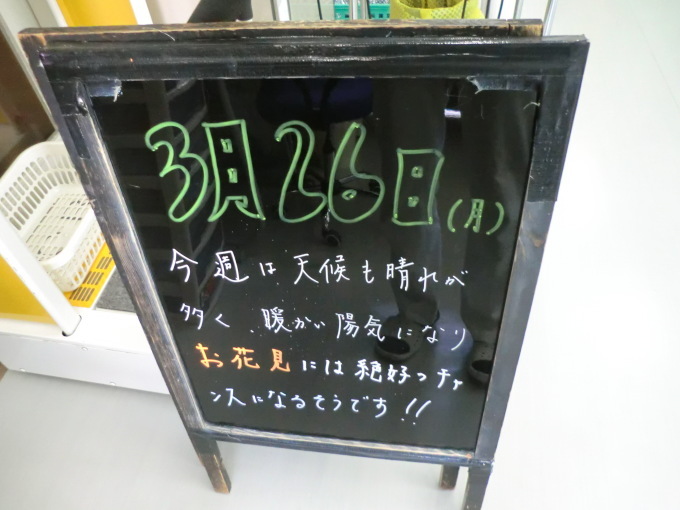 3月26日(月)
今週は天候も晴れが
多く、暖かい陽気になり
お花見には絶好っチャ
ンスになるそうです!!